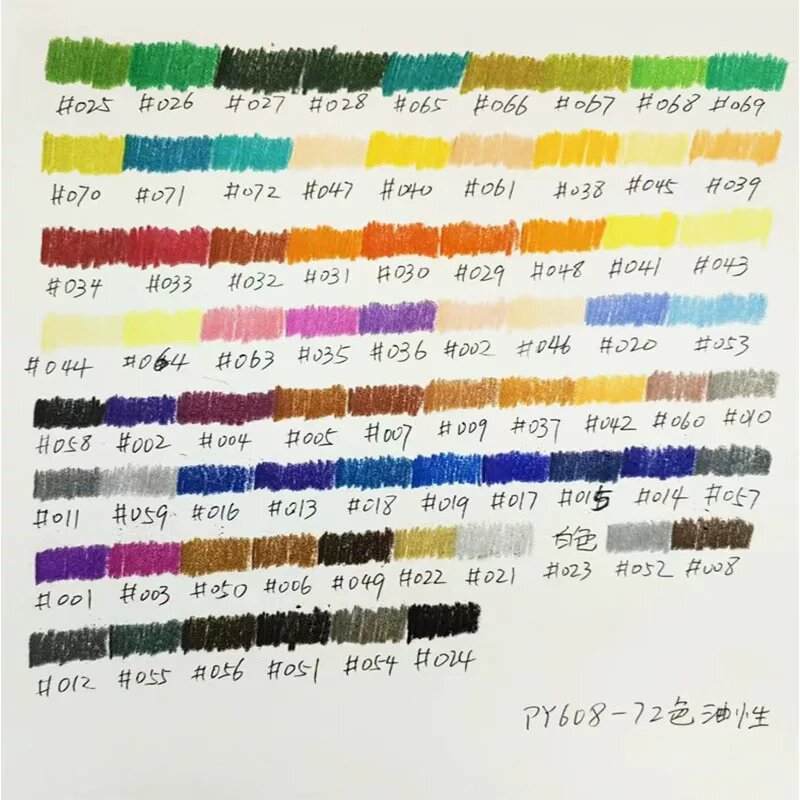 #025 #026 #027 #028 #065 #066 #067 #068 #069
#070 #071 #072 #047 #040 #061 #038 #045 #039
#034 #033 #032 #031 #030 #029 #048 #041 #043
#044 #064 #063 #035 #036 #002 #046 #020 #053
#058 #002 #004 #005 #007 #009 #037 #042 #060 #010
#011 #059 #016 #013 #018 #019 #017 #015 #014 #057
白色
#001 #003 #050 #006 #049 #022 #021 #023 #052 #008
#012 #055 #056 #051 #054 #024
PY608-72色油性